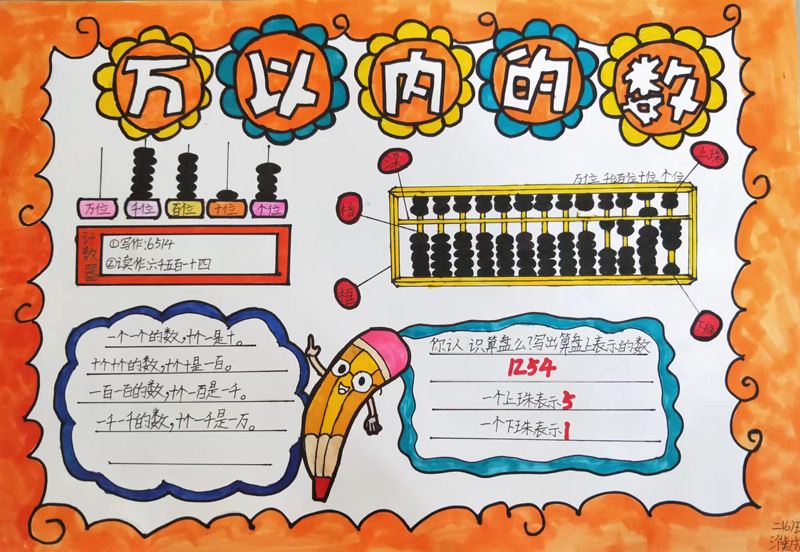 万以内的数
万位 千位 百位 十位 个位
计数器
①写作:6514
②读作:六千五百一十四
梁
上珠
万位 千位 百位 十位 个位
档
框
下珠
一个一个的数,十个一是十。
十个十个的数,十个十是一百。
一百一百的数,十个一百是一千。
一千一千的数,十个一千是一万。
你认识算盘么?写出算盘上表示的数
1254
一个上珠表示5
一个下珠表示1
二16班